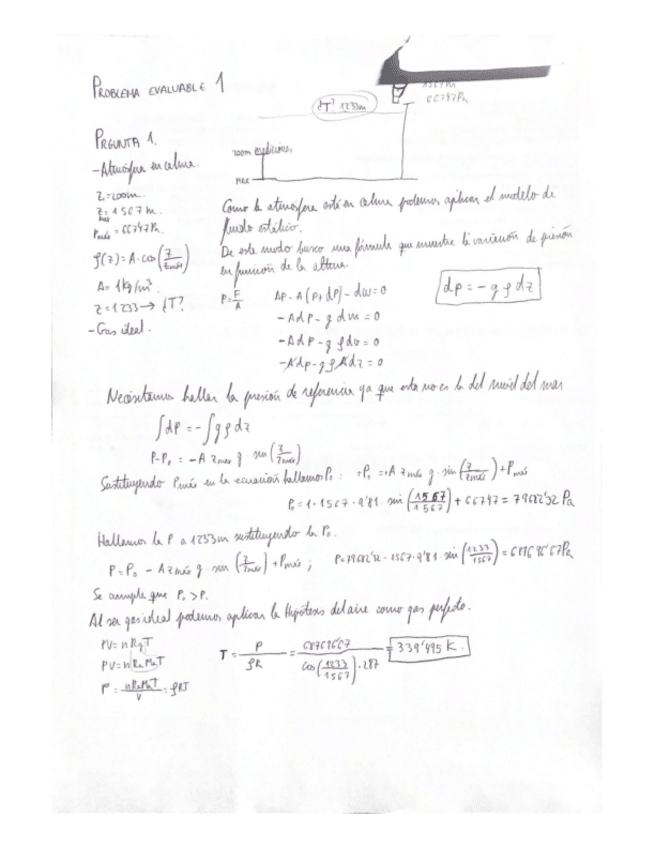 PROBLEMA EVALUABLE 1
¿T? 1233m
1567m
66797Pa
200m
PREGUNTA 1.
- Atmósfera en calma.
Z=200m.
Z más = 1567m.
Pmás = 66797Pa.
ρ(z) = A·cos(Z/Zmás)
A = 1kg/m³
Z=1233 → ¿T?
- Gas ideal.
Como la atmósfera está en calma podemos aplicar el modelo de
fluido estático.
De este modo busco una fórmula que muestre la variación de presión
en función de la altura.
P=F/A
AP - A(P+dP) - dω = 0
- AdP - g dm = 0
- AdP - g ρdv = 0
- AdP - g ρ Adz = 0
dp = -g ρ dz
Necesitamos hallar la presión de referencia ya que esta no es la del nivel del mar
∫dP = -∫gρdz
P-P₀ = -A Zmás g · sin(Z/Zmás)
Sustituyendo Pmás en la ecuación hallamos P₀: +P₀ = +A Zmás g · sin(Z/Zmás) + Pmás
P₀ = 1·1567·9'81· sin(1567/1567) + 66797 = 79682'32 Pa
Hallamos la P a 1233m sustituyendo la P₀.
P = P₀ - A Zmás g · sin(Z/Zmás) + Pmás ; P=79682'32 - 1567·9'81· sin(1233/1567) =
Se cumple que P₀ > P.
Al ser gas ideal podemos aplicar la Hipótesis del aire como gas perfecto.
T = P/ρR = / cos(1233/1567)·287 = 339'495 K.